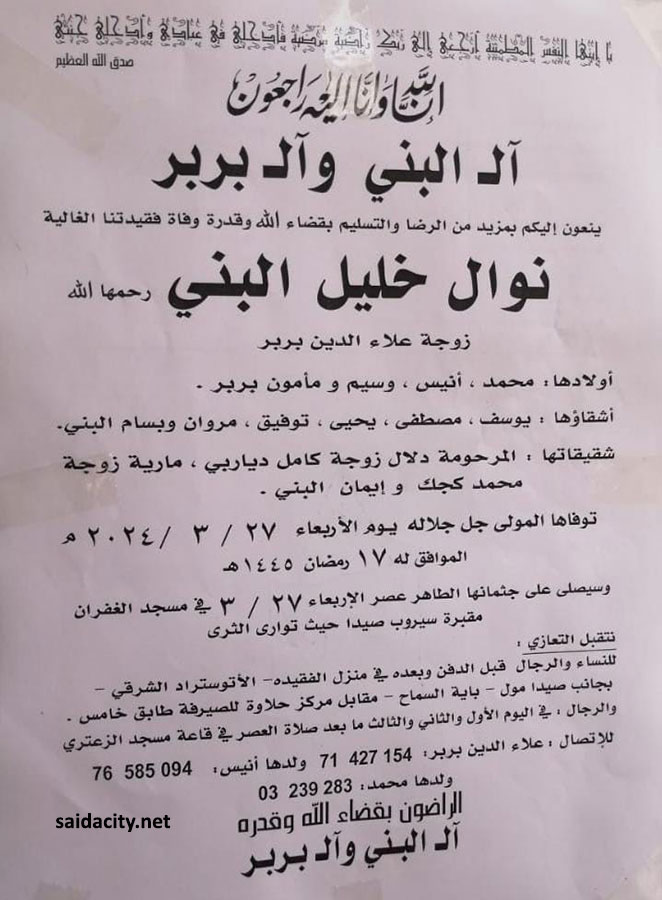 يا ايتها النفس المطمئنة ارجعي الى ربك راضية مرضية فادخلي في عبادي وادخلي جنتي
صدق الله العظيم
إنا لله وإنا إليه راجعون
آل البني وآل بربر
ينعون إليكم بمزيد من الرضا والتسليم بقضاء الله وقدرة وفاة فقيدتنا الغالية
نوال خليل البني رحمها الله
زوجة علاء الدين بربر
أولادها : محمد ، أنيس ، وسيم و مأمون بربر .
أشقاؤها : يوسف ، مصطفى ، يحيى ، توفيق ، مروان وبسام البني.
شقيقاتها : المرحومة دلال زوجة كامل دياربي ، مارية زوجة
محمد كجك و إيمان البني .
توفاها المولى جل جلاله يوم الأربعاء ٢٧ / ٣ / ٢٠٢٤ م
الموافق له ١٧ رمضان ١٤٤٥هـ
وسيصلى على جثمانها الطاهر عصر الإربعاء ٢٧ / ٣ في مسجد الغفران
مقبرة سيروب صيدا حيث توارى الثرى
نتقبل التعازي :
للنساء والرجال قبل الدفن وبعده في منزل الفقيده- الأتوستراد الشرقي -
بجانب صيدا مول - باية السماح - مقابل مركز حلاوة للصيرفة طابق خامس .
والرجال : في اليوم الأول والثاني والثالث ما بعد صلاة العصر في قاعة مسجد الزعتري
للإتصال : علاء الدين بربر: 71 427 154 ولدها أنيس: 76 585 094
ولدها محمد: 03 239 283
الراضون بقضاء الله وقدره
آل البني وآل بربر
saidacity.net